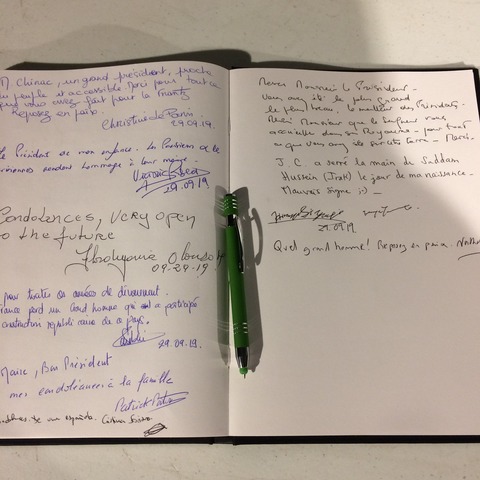 Mr Chirac, un grand président, proche
du peuple et accessible Merci pour tout ce
que vous avez fait pour la France
Reposez en paix.
Christine
29.09.19.
Le Président de mon enfance. La Parisienne et le
rendent hommage à leur maire.
29.09.19
Condolences, very open
to the future
09-29-19.
pour toutes ces années de dévouement.
perd un Grand homme qui a participé
construction républicaine de ce pays.
29.09.19.
Maire, Bon Président
mes condoléances à la famille
Patrick
Merci Monsieur le Président.
Vous avez été le plus grand
le plus beau le meilleur des Présidents.
Merci Monsieur que le Seigneur vous
accueille dans son Royaume pour tout
ce que vous avez fait sur cette terre - Merci.
J.C. a serré la main de Saddam
Hussein (Irak) le jour de ma naissance.
Mauvais signe :)
29.09.19
Quel grand homme! Reposez en paix.